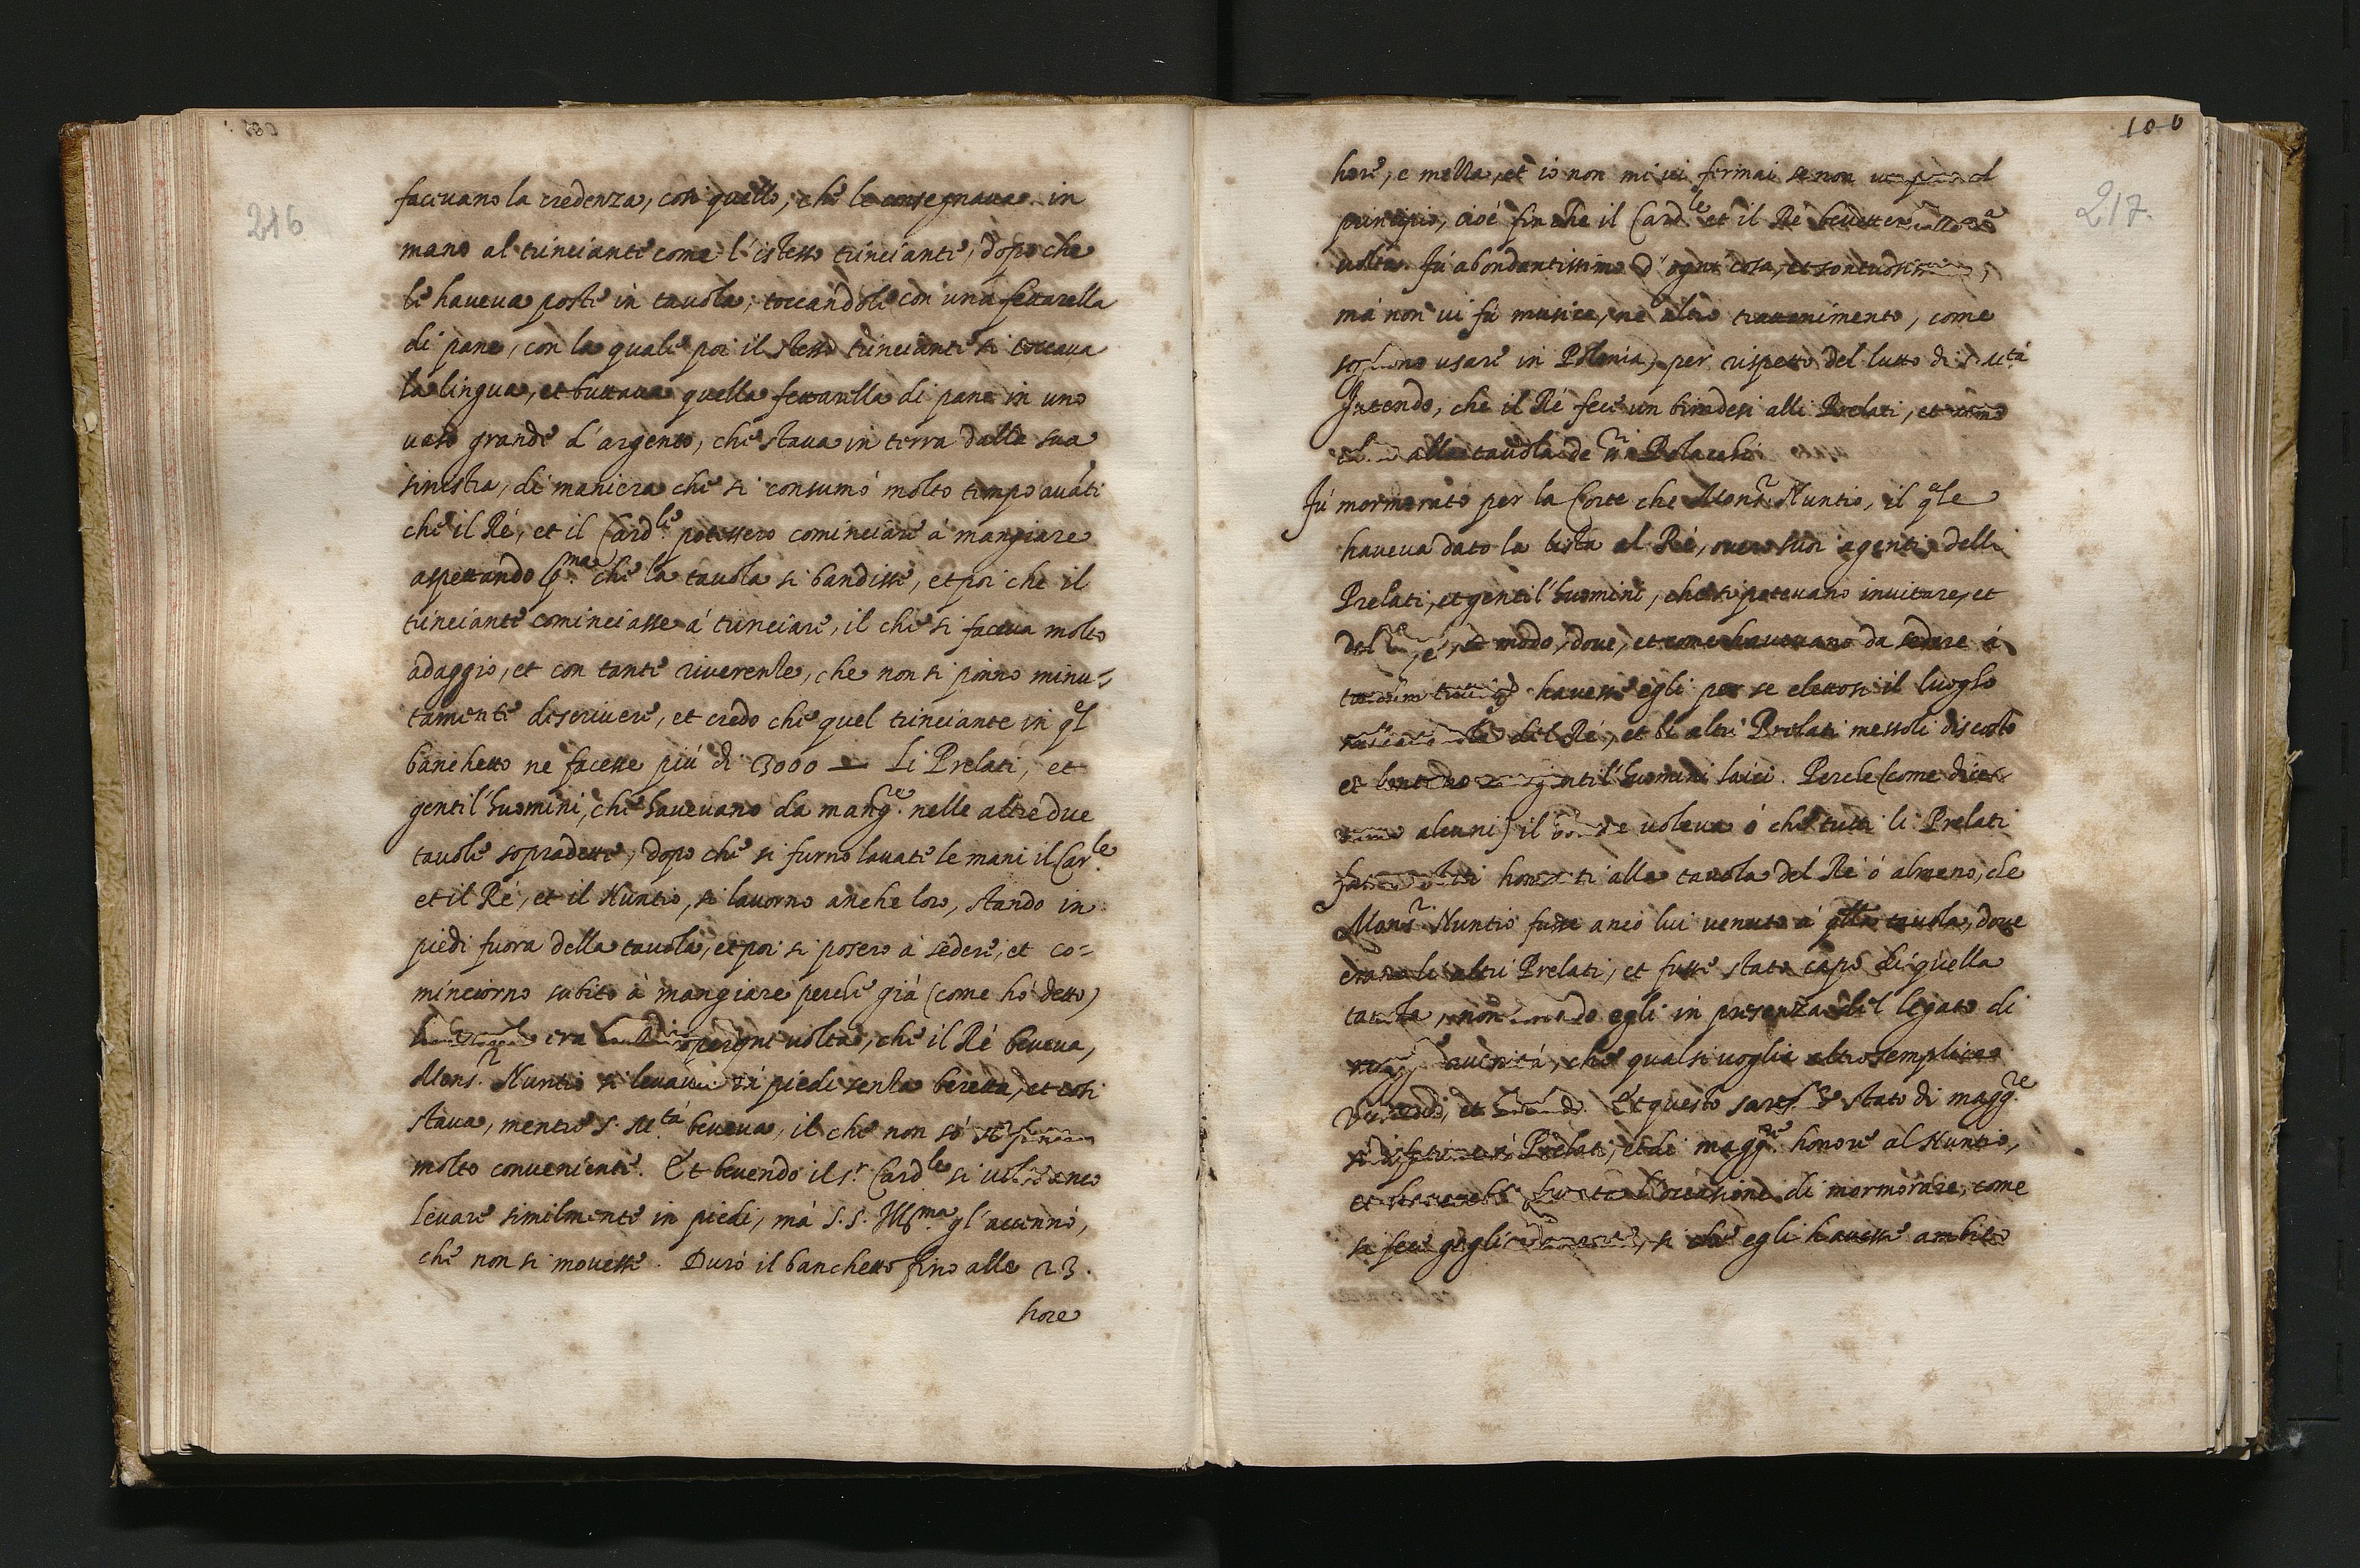 216
facevano la credenza, così quello, che le consegnava in
mano al trinciante come l'istesso trinciante, dopo che
le haveva poste in tavola, toccandole con una fettarella
di pane, con la quale poi il stesso trinciante si toccava
la lingua, et buttava quella fettarella di pane in uno
vaso grande d'argento, che stava in terra dalla sua
sinistra, di maniera che si consumò molto tempo avãti
che il Rè, et il Card.le potessero cominciare à mangiare
aspettando p.ma che la tavola si bandisse, et poi che il
trinciante cominciasse à trinciare, il che si faceva molto
adaggio, et con tante riverenze, che non si ponno minu=
tamente descrivere, et credo che quel trinciante in q̃l
banchetto ne facesse più di 3000 — Li Prelati, et
gentil'huomini, che havevano da mang.re nelle altre due
tavole sopradette, dopo che si furno lavate le mani il Car.le
et il Rè, et il Nuntio, si lavorno anche loro, stando in
piedi fuora della tavola, et poi si posero à sedere, et co=
minciorno subito à mangiare perche già (come hò detto)
era volta, che il Rè beveva,
Mons.r Nuntio si levava in piedi senza beretta, et così
stava, mentre S. M.tà beveva, il che non sò se
molto conveniente. Et bevendo il s.r Card.le si volse anco
levare similmente in piedi, mà S. S. Ill.ma gl'accennò,
che non si movesse. Durò il banchetto fino alle 23.
hore
100
217.
hore, e mezza, et io non mi vi fermai se non un poco al
principio, cioè fin che il Card.le et il Rè bevettero
volta. Fù abondantissimo d'ogni cosa, et
mà non vi fù musica, nè altro trattenimento, come
sogliono usare in Polonia, per rispetto del lutto di S. M.tà
Intendo, che il Rè fece un brindesi alli Prelati, et
alla tavola de Polacchi
Fù mormorato per la Corte che Mons.r Nuntio, il q̃le
haveva dato la lista al Rè, suoi agenti delli
Prelati, et gentil'huomini, che si potevano invitare, et
del modo, dove, et come havevano da sedere à
havesse egli per se elettosi il luogho
del Rè, et li altri Prelati messoli discosto
et gentil'huomini laici. Perche (come
alcuni) il voleva ò che tutti li Prelati
alla tavola del Rè ò almeno, che
Mons.r Nuntio fusse anco lui venuto à q̃lla tavola, dove
erano li altri Prelati, et fusse stato capo di quella
tavola, non egli in presenza del legato di
auttorità, che qualsivoglia altro semplice
et Et questo stato di magg.re
Prelati, et di magg.re honore al Nuntio,
et occasione di mormorare, come
si fece che egli havesse ambito